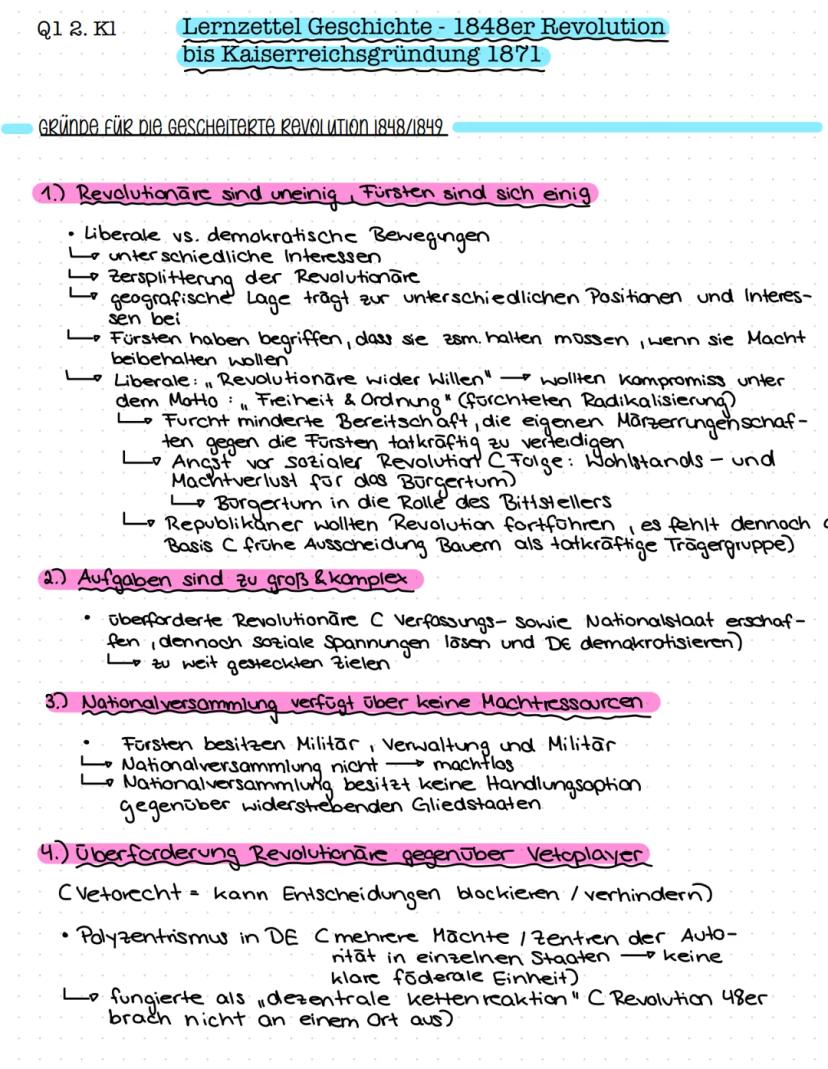 Q1 2. Kl
Lernzettel Geschichte - 1848er Revolution
bis Kaiserreichsgründung 1871
GRÜNDE FÜR DIE GESCHEITERTE REVOLUTION 1848/1849
1.) Revolutionäre sind uneinig, Fürsten sind sich einig
• Liberale vs. demokratische Bewegungen
↳ unterschiedliche Interessen
↳ Zersplitterung der Revolutionäre
↳ geografische Lage trägt zur unterschiedlichen Positionen und Interes-
sen bei
↳ Fürsten haben begriffen, dass sie zsm. halten müssen, wenn sie Macht
beibehalten wollen
↳ Liberale: „Revolutionäre wider Willen" → wollten Kompromiss unter
dem Motto: „Freiheit & Ordnung" (fürchteten Radikalisierung)
↳ Furcht minderte Bereitschaft, die eigenen Märzerrungenschaf-
ten gegen die Fürsten tatkräftig zu verteidigen
↳ Angst vor sozialer Revolution (Folge: Wohlstands- und
Machtverlust für das Bürgertum)
↳ Bürgertum in die Rolle des Bittstellers
↳ Republikaner wollten Revolution fortführen, es fehlt dennoch
Basis (frühe Ausscheidung Bauern als tatkräftige Trägergruppe)
2.) Aufgaben sind zu groß & komplex
• überforderte Revolutionäre (Verfassungs- sowie Nationalstaat erschaf-
fen, dennoch soziale Spannungen lösen und DE demokratisieren)
↳ zu weit gesteckten Zielen
3.) Nationalversammlung verfügt über keine Machtressourcen
• Fürsten besitzen Militär, Verwaltung und Militär
↳ Nationalversammlung nicht → machtlos
↳ Nationalversammlung besitzt keine Handlungsoption
gegenüber widerstrebenden Gliedstaaten
4.) Überforderung Revolutionäre gegenüber Vetoplayer
(Vetorecht = kann Entscheidungen blockieren / verhindern)
• Polyzentrismus in DE (mehrere Mächte / Zentren der Auto-
rität in einzelnen Staaten → keine
klare föderale Einheit)
↳ fungierte als „dezentrale Kettenreaktion" (Revolution 48er
brach nicht an einem Ort aus)